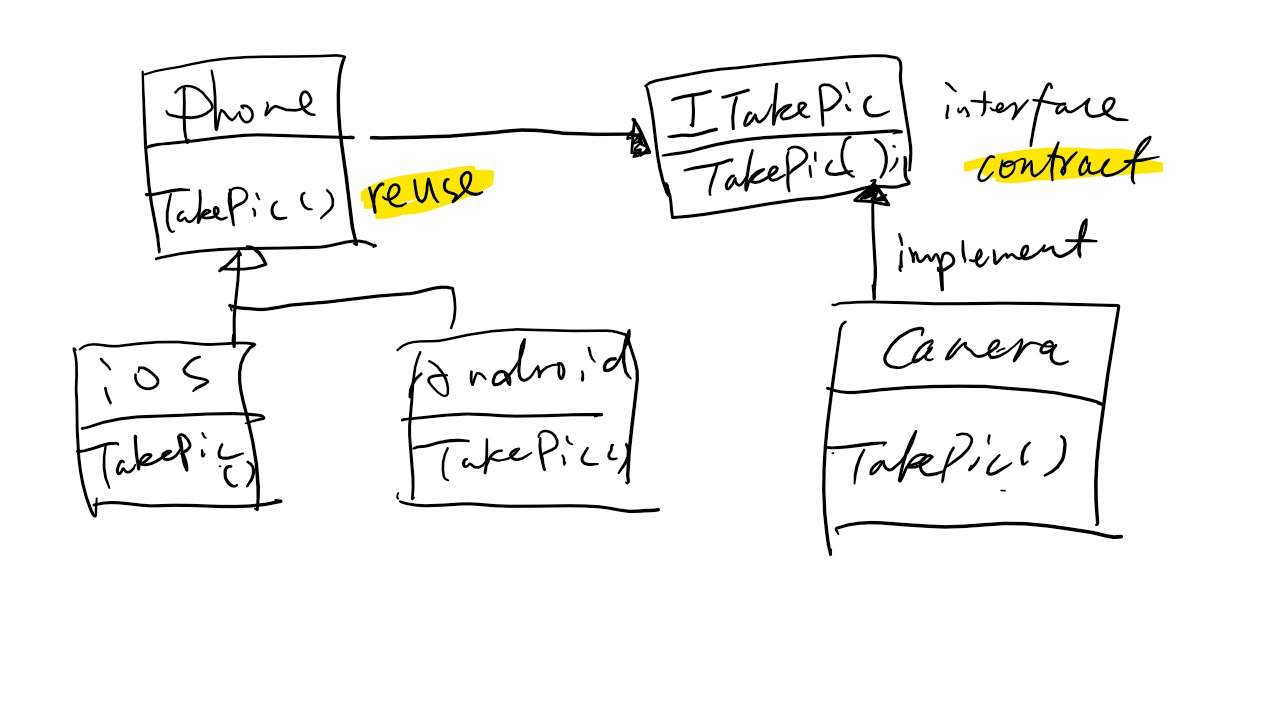 Phone
TakePic()
reuse
ITakePic
TakePic();
interface
contract
implement
iOS
TakePic
()
Android
TakePic()
Camera
TakePic()